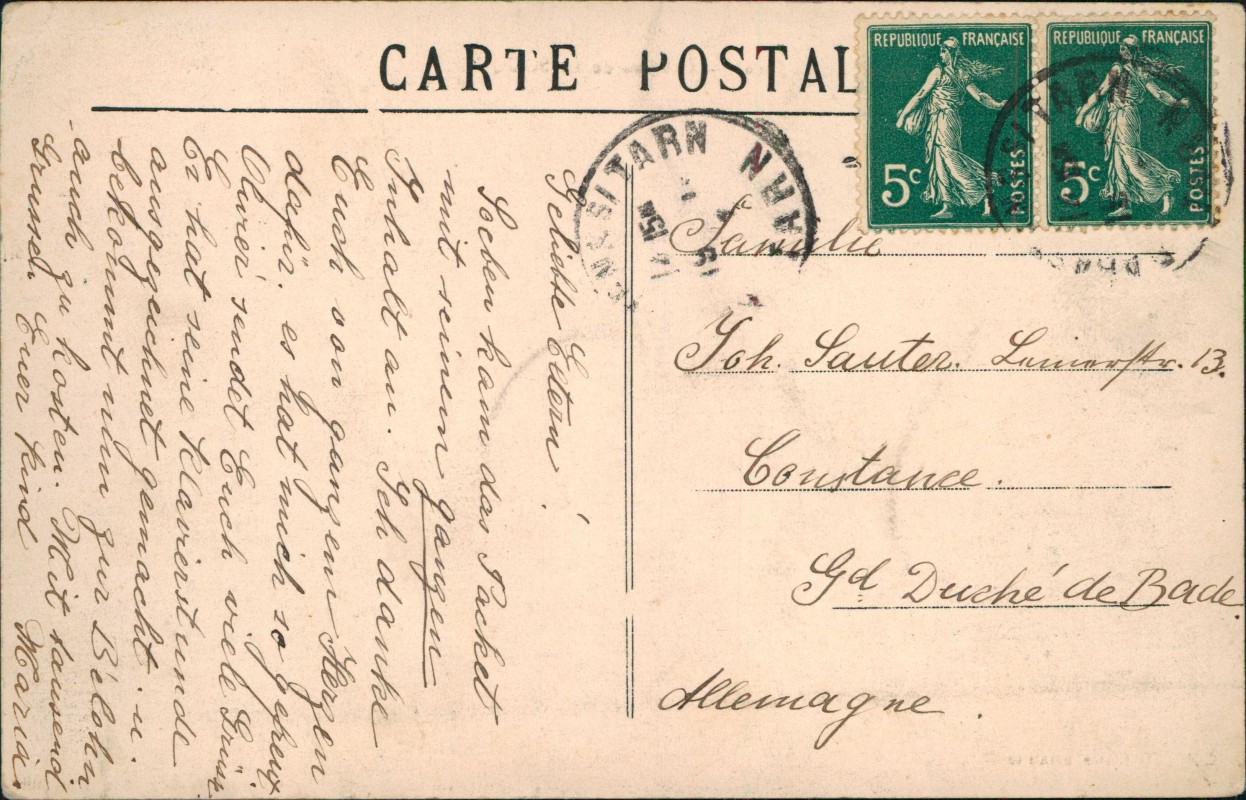 CARTE POSTAL
REPUBLIQUE FRANÇAISE
5c
POSTES
REPUBLIQUE FRANÇAISE
5c
POSTES
SITARN
TARN
SITARN
Geliebte Eltern!
Soeben kam das Packet
mit seinem ganzen
Inhalt an. Ich danke
Euch von ganzem Herzen
dafür, es hat mich so gefreut
Olivier sendet Euch viele Grüsse
Er hat seine Klavierstunde
ausgezeichnet gemacht u.
bekommt nun zur Belohn
auch zu kosten. Mit tausend
Grüssen Euer Kind Maria
Familie
Joh. Sauter. 13.
Constance.
Gd Duché de Bade
Allemagne.